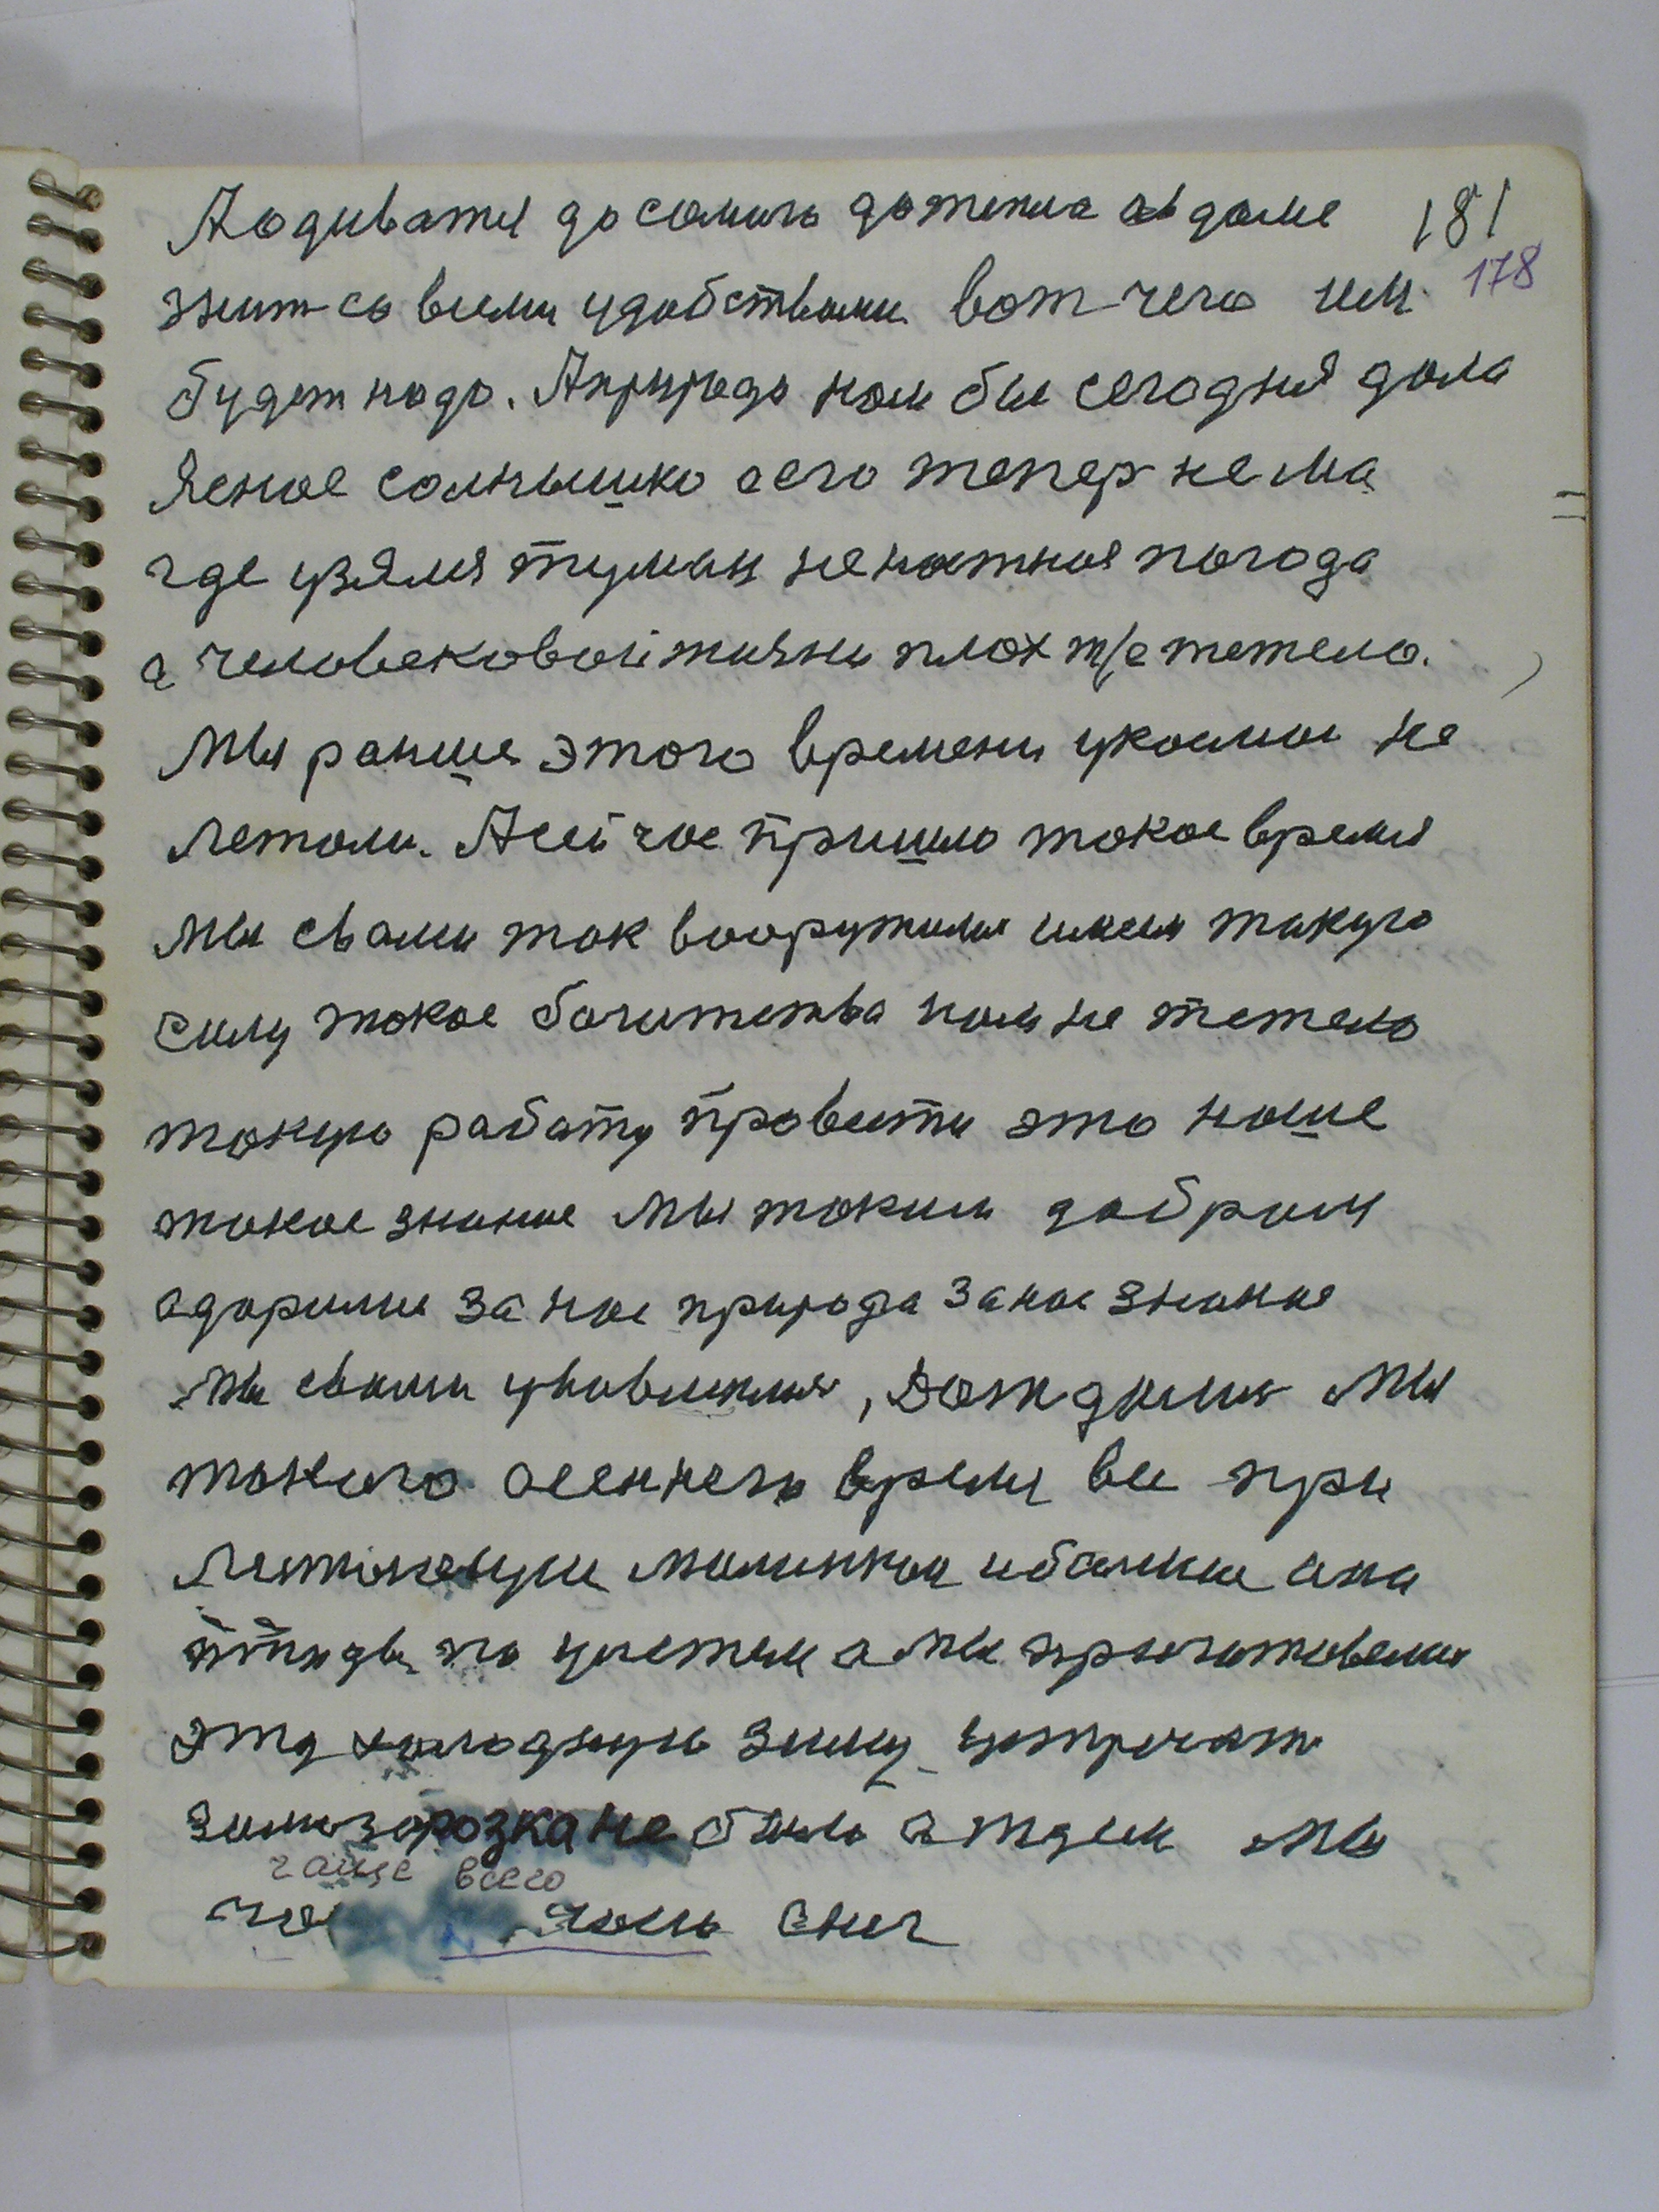 А одиватся до самого дотепла а в доме 181
жит со всеми удобствами вот чего им 178
будет надо. А природа нам бы сегодня дала
Ясное солнышко а его тепер нема
где узялся туман ненастная погода
а человековой жизни плох
Мы раньше этого времени у космос не
летали. А сейчас пришло такое время
мы с вами так вооружилися имеем такую
силу такое богатства нам не тежело
такую работу провести это наше
такое знание мы таким добром
адарилися за нас природа за нас знания
мы с вами, Дождались мы
такого осеннего время все при
маленькая и большие
птицы по а мы приготовелися
эту холодную зиму устречат
не было а ждем мы
чаще всего
снег